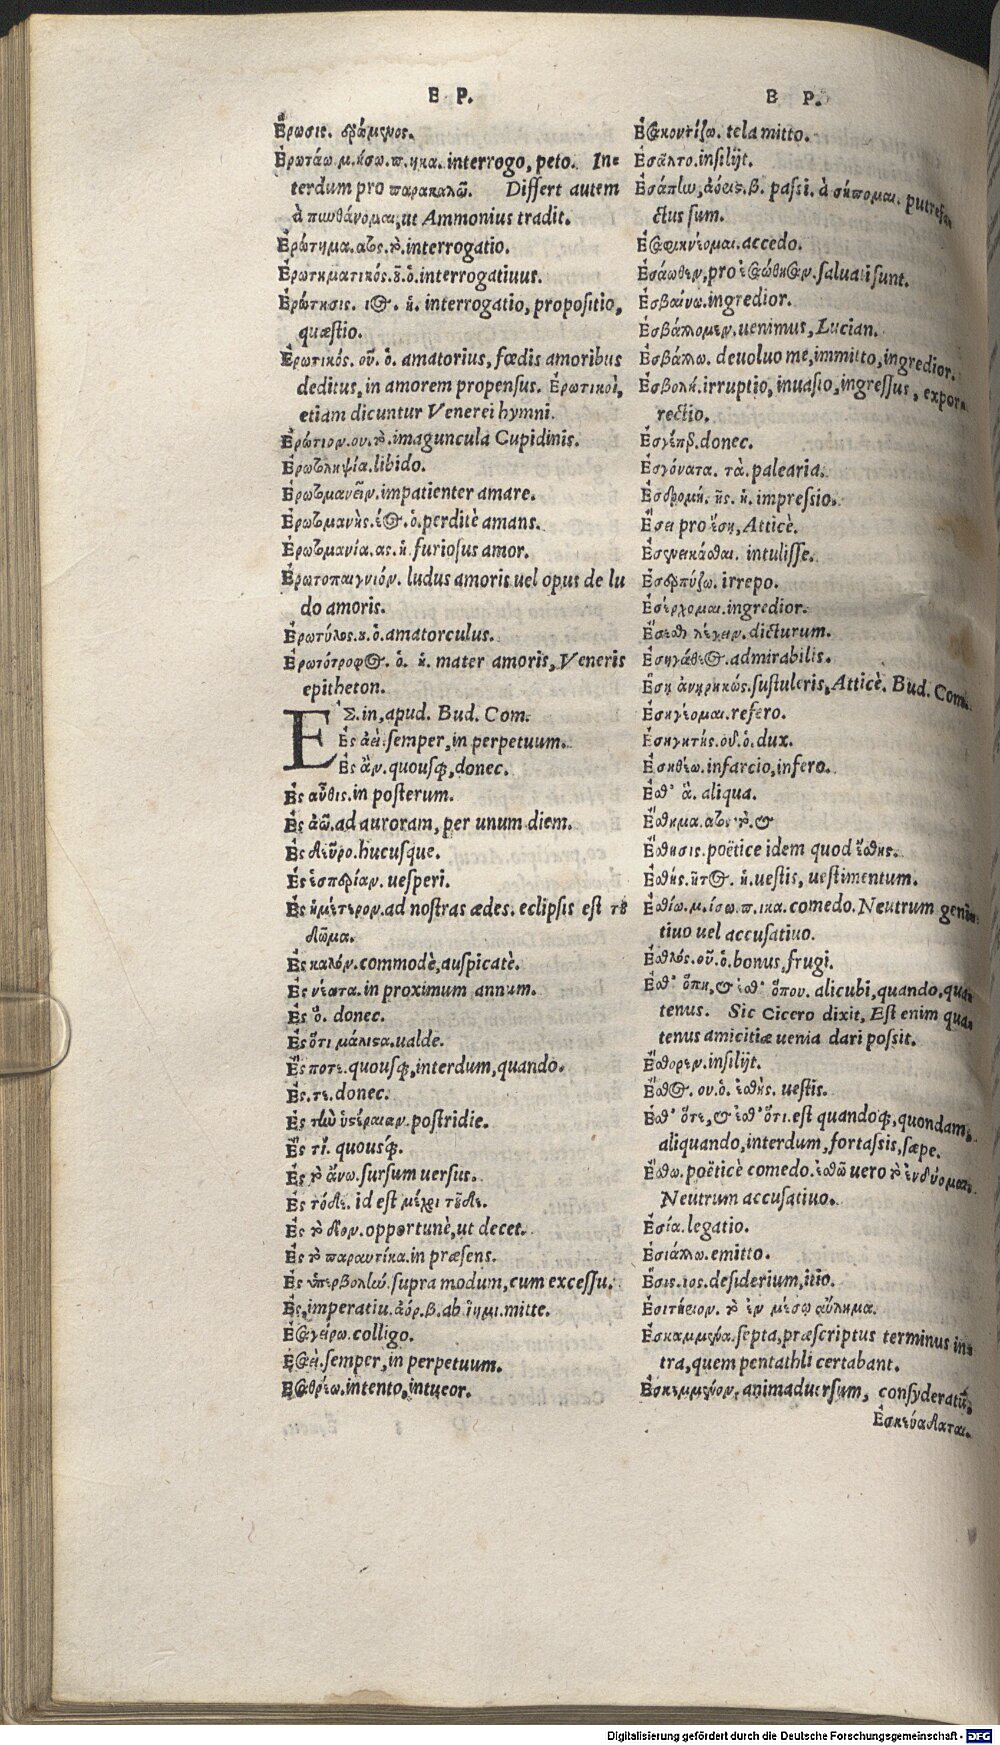 Ε Ρ.
Ἔρωσις. ἐράμενος.
Ἐρωτάω.μ.ήσω.π.ηκα. interrogo, peto. In-
terdum pro παρακαλῶ. Differt autem
à πυνθάνομαι, ut Ammonius tradit.
Ἐρώτημα.ατος.τὸ. interrogatio.
Ἐρωτηματικός.οῦ.ὁ. interrogatiuus.
Ἐρώτησις. ιος. ἡ. interrogatio, propositio,
quæstio.
Ἐρωτικός. οῦ. ὁ. amatorius, fœdis amoribus
deditus, in amorem propensus. Ἐρωτικοὶ,
etiam dicuntur Venerei hymni.
Ἐρώτιον.ου.τὸ. imaguncula Cupidinis.
Ἐρωτοληψία. libido.
Ἐρωτομανεῖν. impatienter amare.
Ἐρωτομανὴς.έος.ὁ. perditè amans.
Ἐρωτομανία.ας.ἡ. furiosus amor.
Ἐρωτοπαιγνιόν. ludus amoris uel opus de lu
do amoris.
Ἐρωτύλος.ου.ὁ. amatorculus.
Ἐρωτότροφος. ὁ. ἡ. mater amoris, Veneris
epitheton.
ἘΣ. in, apud. Bud. Com.
Ἐς ἀεὶ. semper, in perpetuum.
Ἐς ἂν. quousq;, donec.
Ἐς αὖθις. in posterum.
Ἐς ἀῶ. ad auroram, per unum diem.
Ἐς δεῦρο. hucusque.
Ἐς ἑσπερίαν. uesperi.
Ἐς ἡμέτερον. ad nostras ædes. eclipsis est τοῦ
δῶμα.
Ἐς καλόν. commodè, auspicatè.
Ἐς νέατα. in proximum annum.
Ἐς ὅ. donec.
Ἐς ὅτι μάλιστα. ualde.
Ἔς ποτε. quousq;, interdum, quando.
Ἔς.τε. donec.
Ἐς τὴν ὑστέραιαν. postridie.
Ἐς τί. quousq;.
Ἐς τὸ ἄνω. sursum uersus.
Ἐς τόδε. id est μέχρι τοῦδε.
Ἐς τὸ δέον. opportunè, ut decet.
Ἐς τὸ παραυτίκα. in præsens.
Ἐς ὑπερβολὴν. supra modum, cum excessu.
Ἐς, imperatiu. ἀόρ.β. ab ἵημι. mitte.
Ἐσαγείρω. colligo.
Ἐσαεὶ. semper, in perpetuum.
Ἐσαθρέω. intento, intueor.
Ε Ρ.
Ἐσακοντίζω. tela mitto.
Ἐσᾶλτο. insilijt.
Ἐσάπην, ἀόρις. β. passi. à σήπομαι. putrefa
ctus sum.
Ἐσαφικνέομαι. accedo.
Ἐσάωθεν, pro ἐσαώθησαν. saluati sunt.
Ἐσβαίνω. ingredior.
Ἐσβάλλομεν. uenimus, Lucian.
Ἐσβάλλω. deuoluo me, immitto, ingredior.
Ἐσβολή. irruptio, inuasio, ingressus, expor
rectio.
Ἐσγέπερ. donec.
Ἐσγόνατα. τὰ. palearia.
Ἐσδρομή. ῆς. ἡ. impressio.
Ἔσει pro ἔσῃ, Atticè.
Ἐσενεικάσθαι. intulisse.
Ἐσερπύζω. irrepo.
Ἐσέρχομαι. ingredior.
Ἔσεσθαι λέγειν. dicturum.
Ἐσηγάθεος. admirabilis.
Ἔσῃ ἀνῃρηκώς. sustuleris, Atticè. Bud. Com.
Ἐσηγέομαι. refero.
Ἐσηγητής.οῦ.ὁ. dux.
Ἐσηθέω. infarcio, infero.
Ἔσθ' ἃ. aliqua.
Ἔσθημα.ατος.τὸ. &
Ἔσθησις. poëtice idem quod ἔσθης.
Ἐσθὴς.ῆτος. ἡ. uestis, uestimentum.
Ἐσθίω.μ.ίσω.π.ικα. comedo. Neutrum geni
tiuo uel accusatiuo.
Ἐσθλός.οῦ.ὁ. bonus, frugi.
Ἔσθ' ὅπη, & ἔσθ' ὅπου. alicubi, quando, qua
tenus. Sic Cicero dixit, Est enim qua
tenus amicitiæ uenia dari possit.
Ἔσθορεν. insilijt.
Ἔσθος. ου.ὁ. ἐσθής. uestis.
Ἔσθ' ὅτε, & ἔσθ' ὅτι. est quandoq;, quondam,
aliquando, interdum, fortassis, sæpe.
Ἔσθω. poëticè comedo. ἐσθῶ uero τὸ ἐνδύομαι.
Neutrum accusatiuo.
Ἐσία. legatio.
Ἐσιάλλω. emitto.
Ἔσις.ιος. desiderium, itio.
Ἐσιτήειον. τὸ ἐν μέσῳ αὔλημα.
Ἐσκαμμένα. septa, præscriptus terminus in-
tra, quem pentathli certabant.
Ἐσκεμμένον. animaduersum, consyderatū,
Ἐσκεύαδαται.
Digitalisierung gefördert durch die Deutsche Forschungsgemeinschaft - DFG